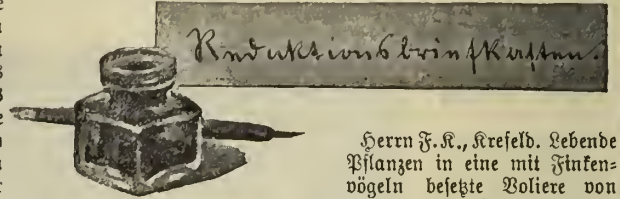 Redaktionsbriefkasten.
Herrn F. K., Krefeld. Lebende
Pflanzen in eine mit Finken-
vögeln besetzte Voliere von